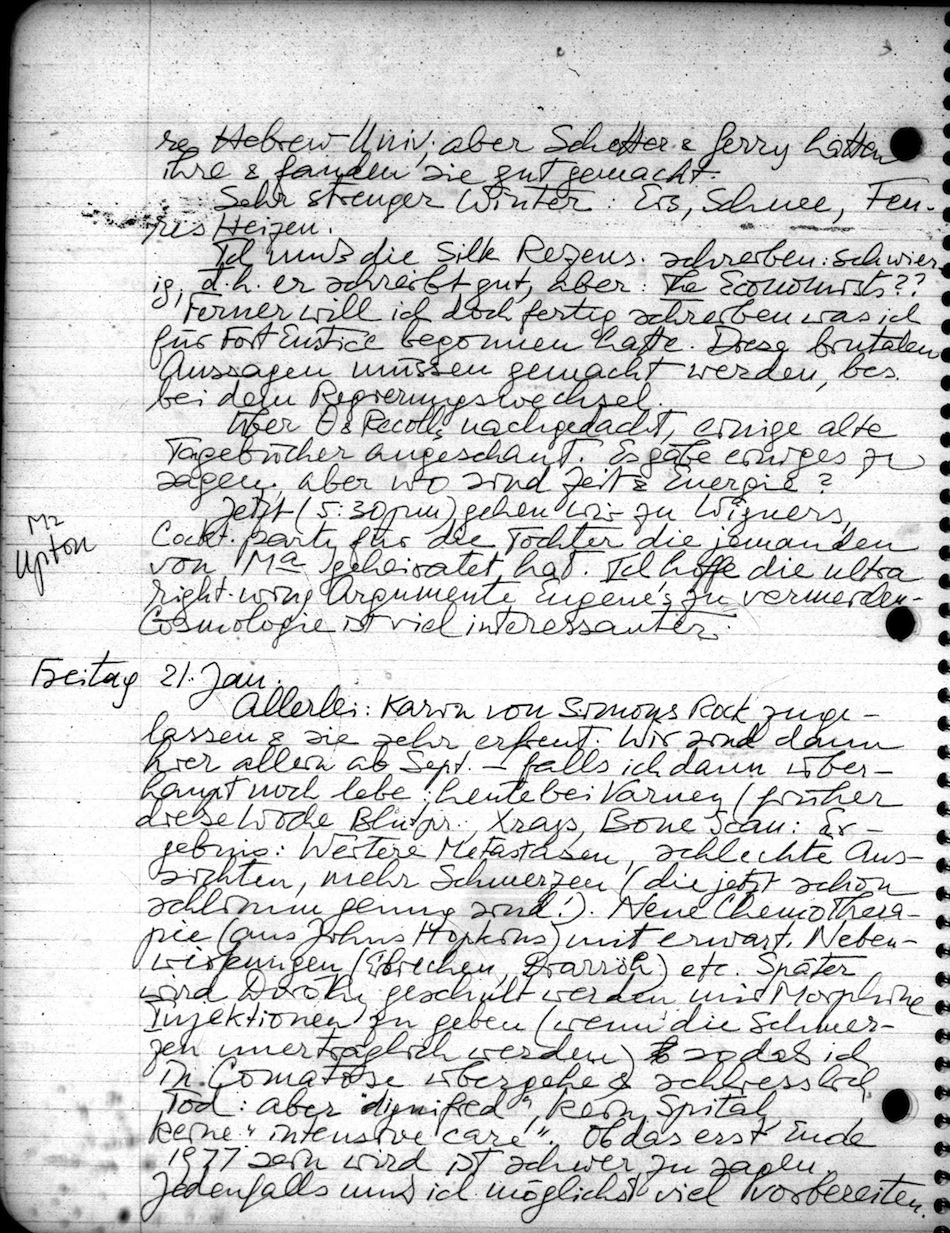 re Hebrew Univ; aber Schotter & Jerry hatten
ihre & fanden sie gut gemacht.
Sehr strenger Winter: Eis, Schnee, Teu-
res Heizen.
Ich muß die Silk Rezens. schreiben: schwier-
ig, d.h. er schreibt gut, aber: The Economists??
Ferner will ich doch fertig schreiben was ich
für Fort Eustice begonnen hatte. Diese brutalen
Aussagen müssen gemacht werden, bes.
bei dem Regierungswechsel.
Über & Recoll. nachgedacht, einige alte
Tagebücher angeschaut. Es gäbe einiges zu
sagen. aber wo sind Zeit & Energie?
Jetzt (5:30 pm) gehen wir zu Wigners,
Cockt. party für die Tochter die jemanden
von Ma geheiratet hat. Ich hoffe die ultra
right-wing Argumente Eugene's zu vermeiden-
Cosmologie ist viel interessanter.
Mr
Upton
Freitag 21. Jan.
Allerlei: Karin von Simons Rock zuge-
lassen & sie sehr erfreut. Wir sind dann
hier allein ab Sept. – falls ich dann über-
haupt noch lebe: heute bei Varney (früher
diese Woche Blutpr., Xrays, Bone Scan: Er-
gebnis: Weitere Metastasen, schlechte Aus-
sichten, mehr Schmerzen (die jetzt schon
schlimm genug sind!). Neue Chemothera-
pie (aus Johns Hopkins) mit erwart. Neben-
wirkungen (Erbrechen, Diarröh) etc. Später
wird Dorothy geschult werden mir Morphine
Injektionen zu geben (wenn die Schmer-
zen unerträglich werden) so daß ich
in Comatose übergehe & schliesslich
Tod: aber "dignified", kein Spital,
keine "intensive care". Ob das erst Ende
1977 sein wird ist schwer zu sagen.
Jedenfalls muß ich möglichst viel vorbereiten.